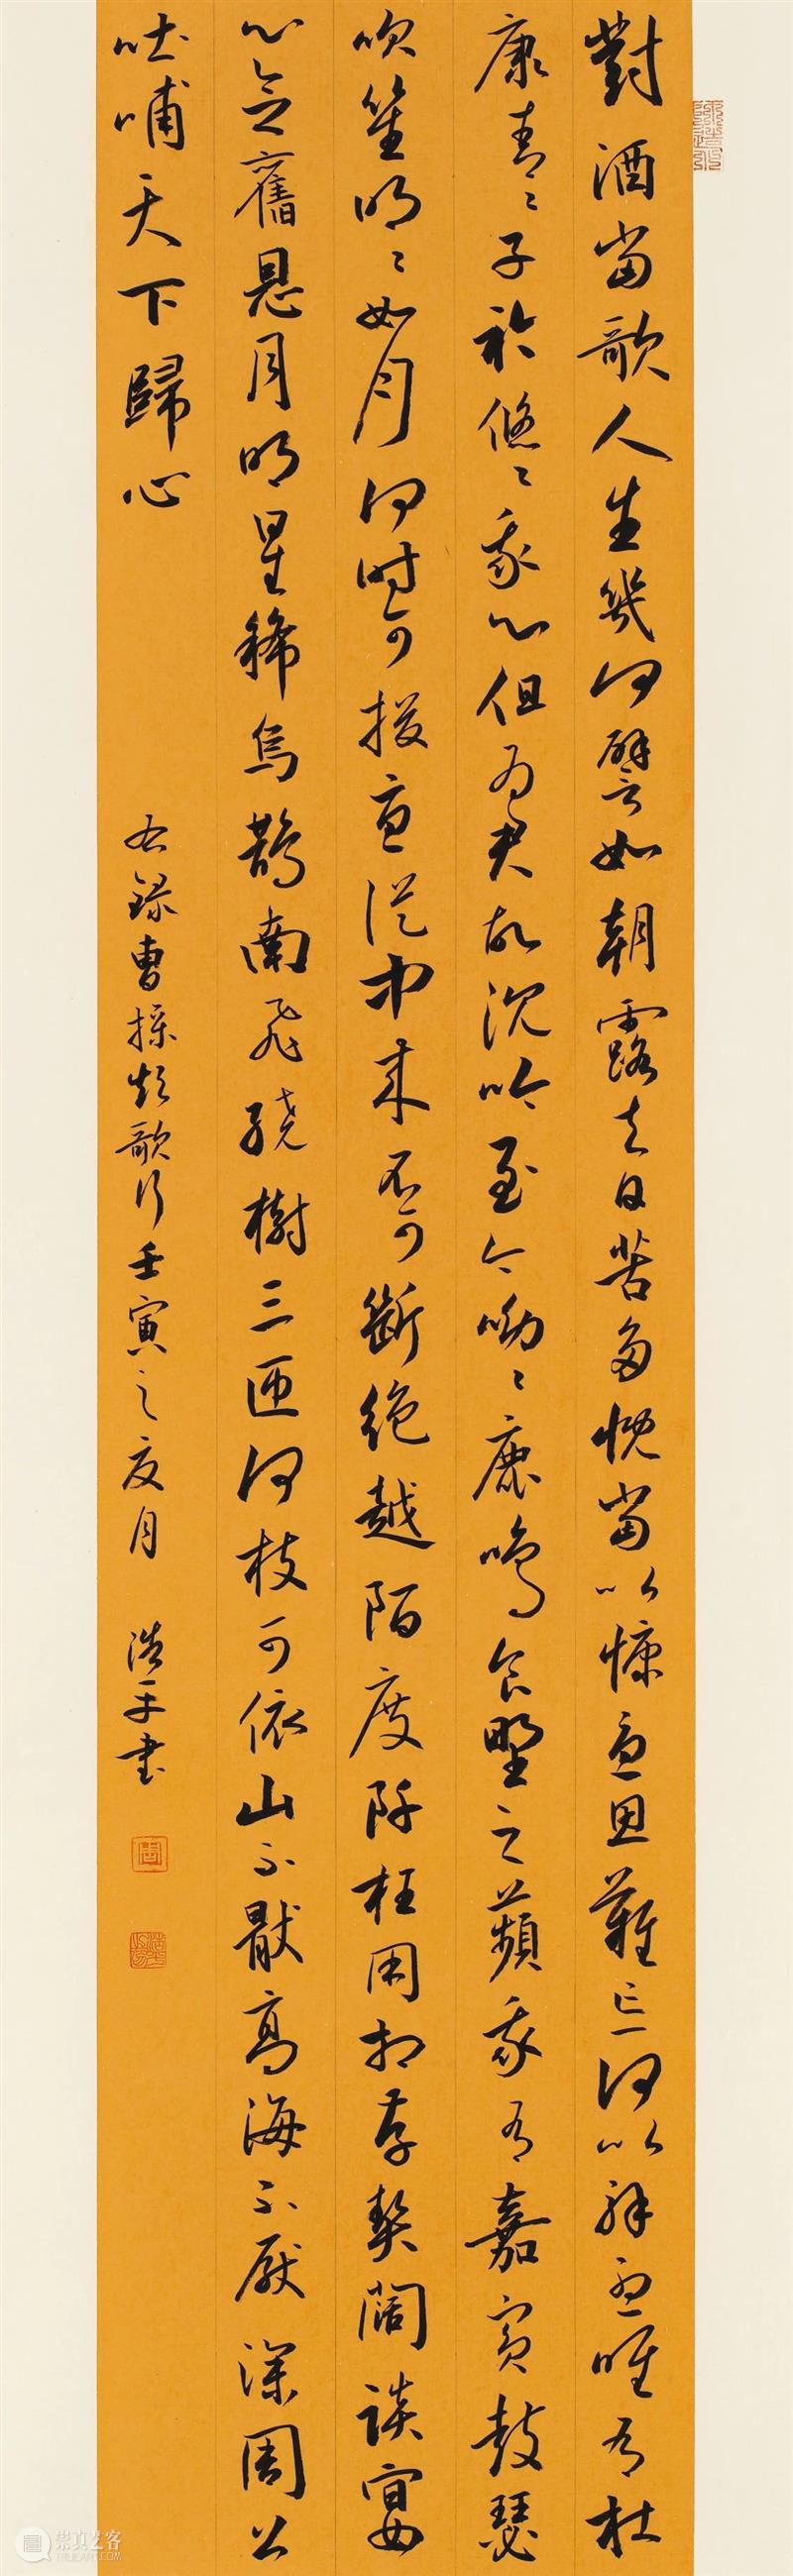 對酒當歌人生幾何譬如朝露去日苦多慨當以慷憂思難忘何以解憂唯有杜
康青〻子衿悠〻我心但為君故沈吟至今呦〻鹿鳴食野之蘋我有嘉賓鼓瑟
吹笙明〻如月何時可掇憂從中來不可斷絕越陌度阡枉用相存契闊談宴
心念舊恩月明星稀烏鵲南飛繞樹三匝何枝可依山不厭高海不厭深周公
吐哺天下歸心
右錄曹操短歌行壬寅之夏月 浩平書
崇真艺客
TRUEART.COM